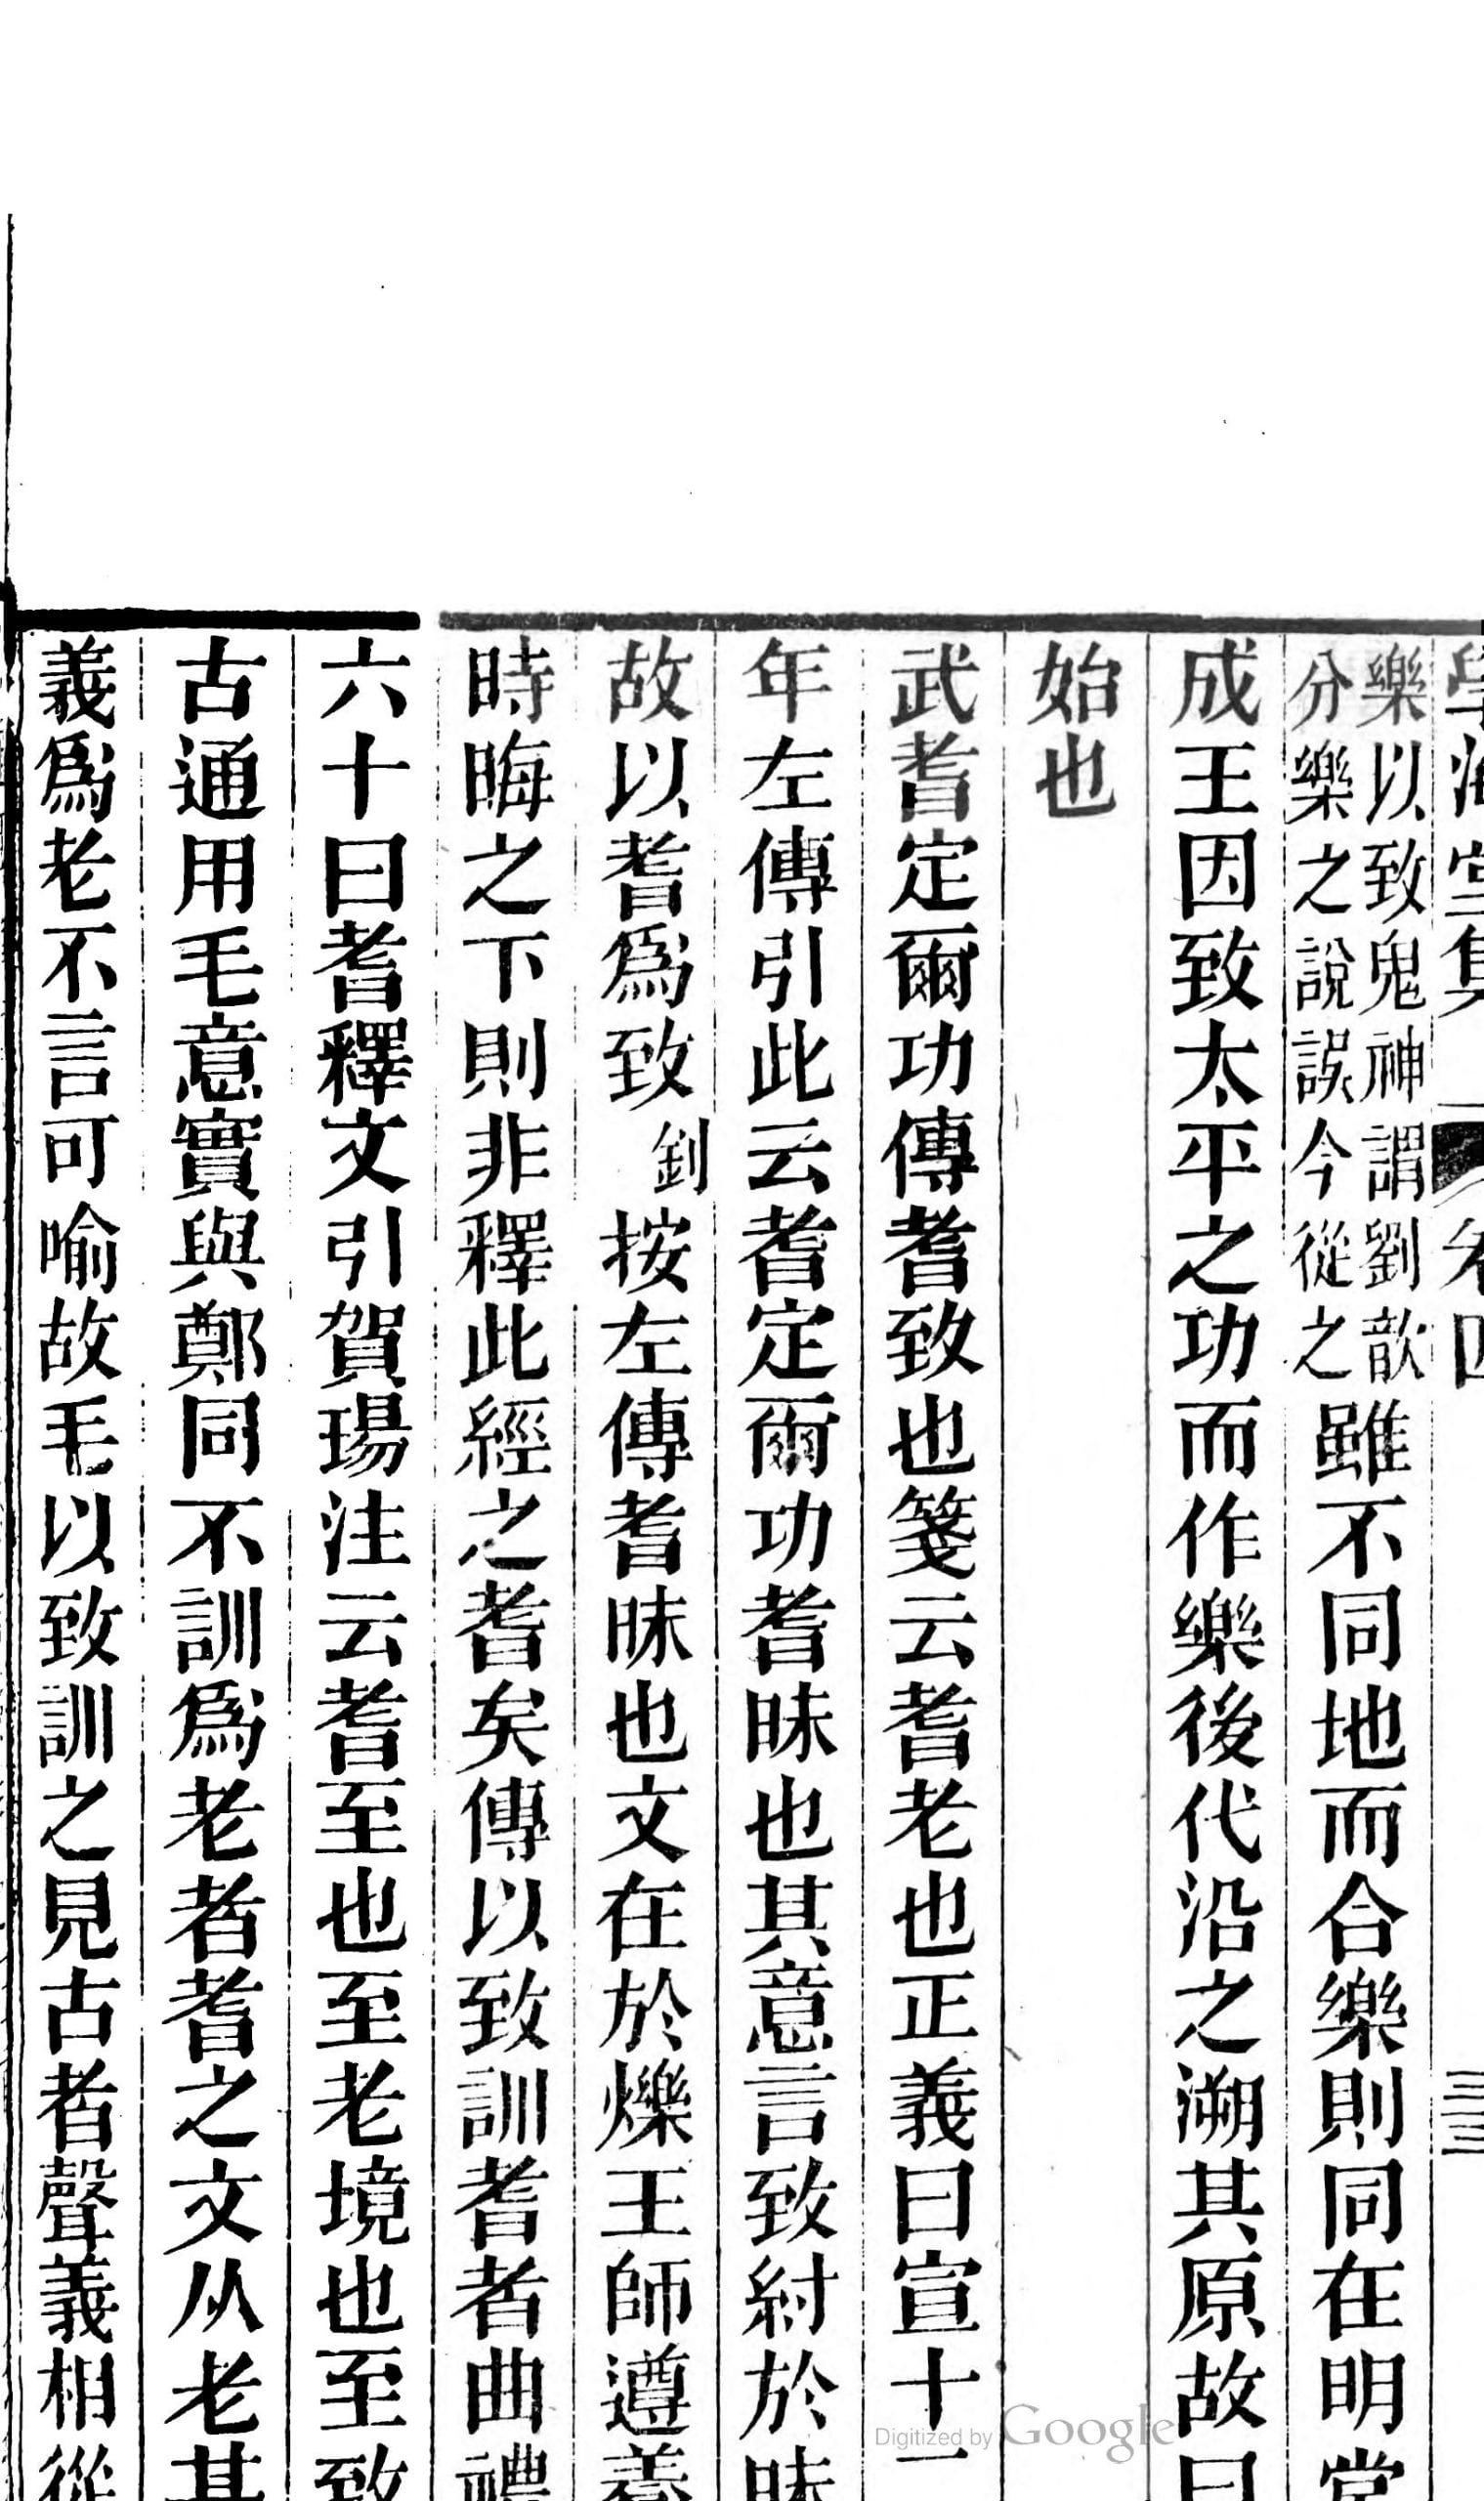 學海堂集 卷四 三三
樂以致鬼神謂劉歆
分樂之說誤今從之
雖不同地而合樂則同在明堂
成王因致太平之功而作樂後代沿之溯其原故曰
始也
武耆定爾功傳耆致也箋云耆老也正義曰宣十二
年左傳引此云耆定爾功耆昧也其意言致紂於昧
故以耆爲致釗按左傳耆昧也文在於爍王師遵養
時晦之下則非釋此經之耆矣傳以致訓耆者曲禮
六十曰耆釋文引賀瑒注云耆至也至老境也至致
古通用毛意實與鄭同不訓爲老者耆之文从老其
義爲老不言可喻故毛以致訓之見古者聲義相從
Digitized by Google